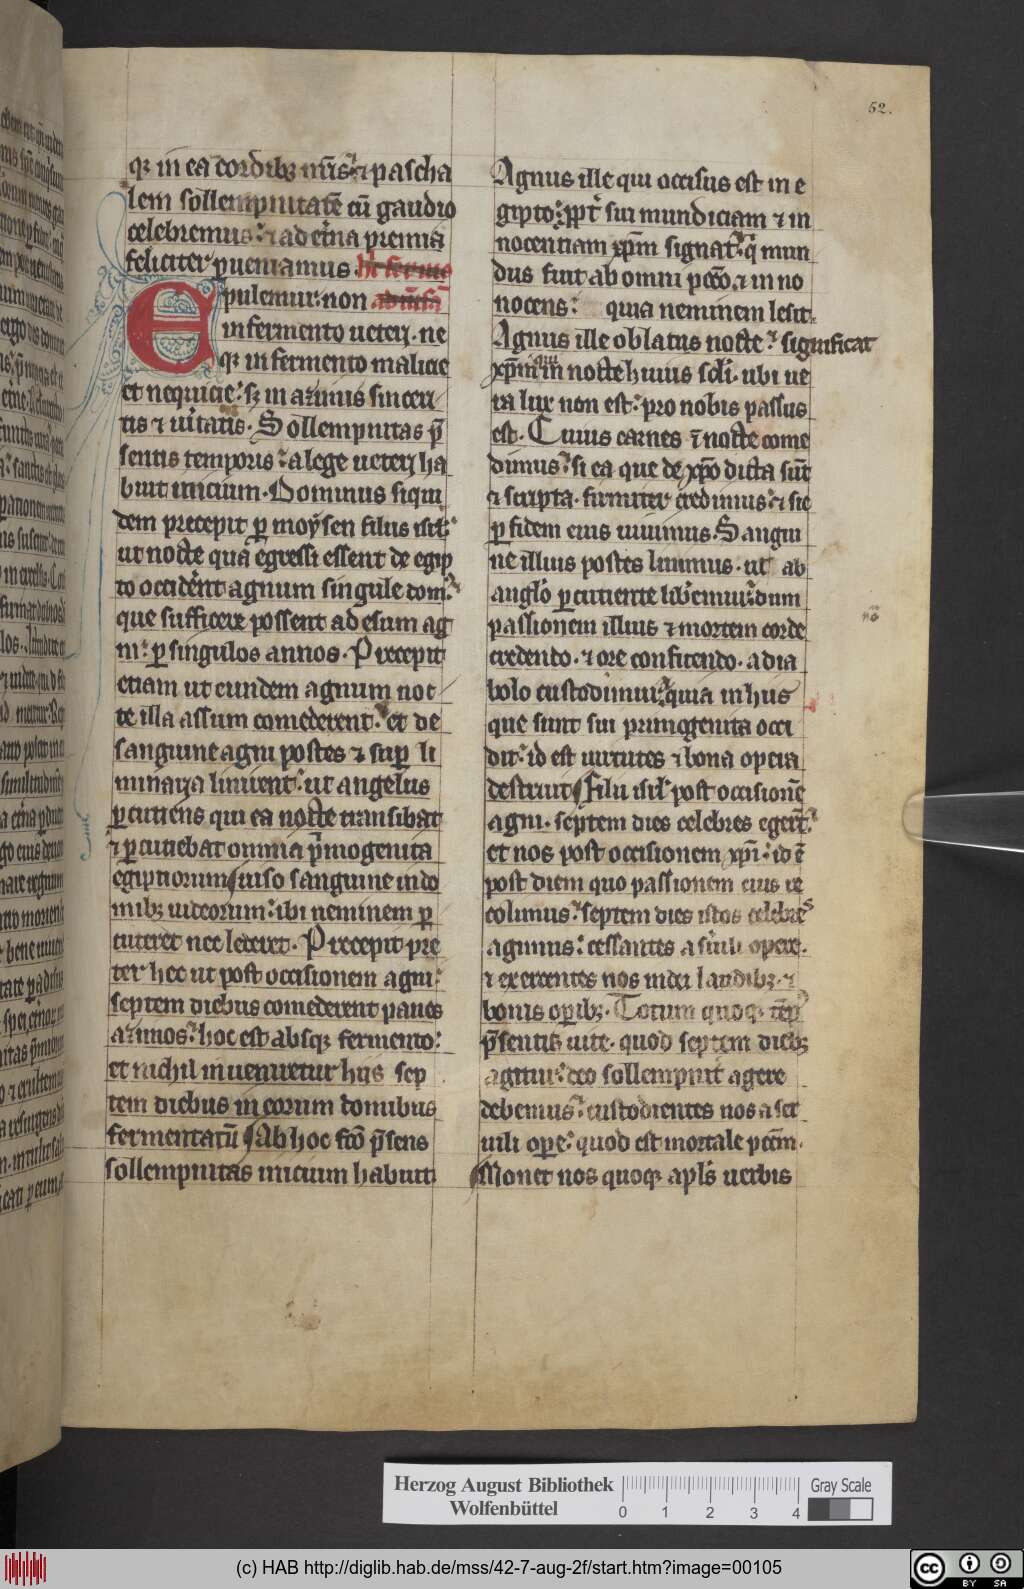 52.
qꝫ in ea cordibꝫ nr̄is ⁊ pascha
lem sollempnitatē cū gaudio
celebremus ⁊ ad et̄na premia
feliciter ꝑueniamus.
Epulemur non
in fermento ueteri. ne
qꝫ in fermento malicie
et nequicie. sꝫ in azimis sinceri
tis ⁊ uͥtatis. Sollempnitas p̄
sentis temporis. a lege ueteri ha
buit inicium. Dominus siqui
dem precepit ꝑ moÿsen filiis isrl.
ut nocte qua egressi essent de egip
to occiderent agnum singule dom.
que sufficere possent ad esum ag
ni. ꝑ singulos annos. Precepit
etiam ut eundem agnum noc
te illa assum comederent. et de
sanguine agni postes ⁊ suꝑ li
minaria linirent. ut angelus
ꝑcutiens qui ea nocte transibat
⁊ ꝑcutiebat omnia p̄mogenita
egiptiorum uiso sanguine in do
mibꝫ iudeorum. ibi neminem ꝑ
cuteret nec lederet. Precepit pre
ter hec ut post occisionem agni.
septem diebus comederent panes
azimos. hoc est absqꝫ fermento.
et nichil inueniretur hijs sep
tem diebus in eorum domibus
fermentatū Ab hoc fc̄o p̄sens
sollempnitas inicium habuit.
Agnus ille qui occisus est in e
gipto. ꝓpt̄ sui mundiciam ⁊ in
nocentiam xp̄m signat. qͥ mun
dus fuit ab omni pcc̄o. ⁊ inno
nocens. quia neminem lesit.
Agnus ille oblatus nocte. significat
xp̄m qui in nocte huius scl̄i. ubi ue
ra lux non est. pro nobis passus
est. Cuius carnes ī nocte come
dimus. si ea que de xp̄o dicta sūt
⁊ scripta. firmiter credimus. ⁊ sic
ꝑ fidem eius uiuimus. Sangui
ne illius postes linimus. ut ab
angl̄o ꝑcutiente lib̄emur. dum
passionem illius ⁊ mortem corde
credendo. ⁊ ore confitendo. a dia
bolo custodimur. quia in hiis
que sunt sui primogenita occi
dit. id est uirtutes ⁊ bona opera
destruit Filii isrl̄ post occisionē
agni. septem dies celebres eger̄t.
et nos post occisionem xp̄i. id ē
post diem quo passionem eius re
colimus. septem dies istos celebres
agimus. cessantes a s̄uili opere.
⁊ exercentes nos in dei laudibꝫ. ⁊
bonis oꝑibꝫ. Totum quoqꝫ tēp̄
p̄sentis uite. quod septem diebꝫ
agitur. deo sollempnit̄ agere
debemus. custodientes nos a ser
uili oꝑe. quod est mortale pcc̄m.
Monet nos quoqꝫ apl̄s uerbis
Herzog August Bibliothek
Wolfenbüttel
0 1 2 3 4
Gray Scale
(c) HAB http://diglib.hab.de/mss/42-7-aug-2f/start.htm?image=00105
cc BY SA